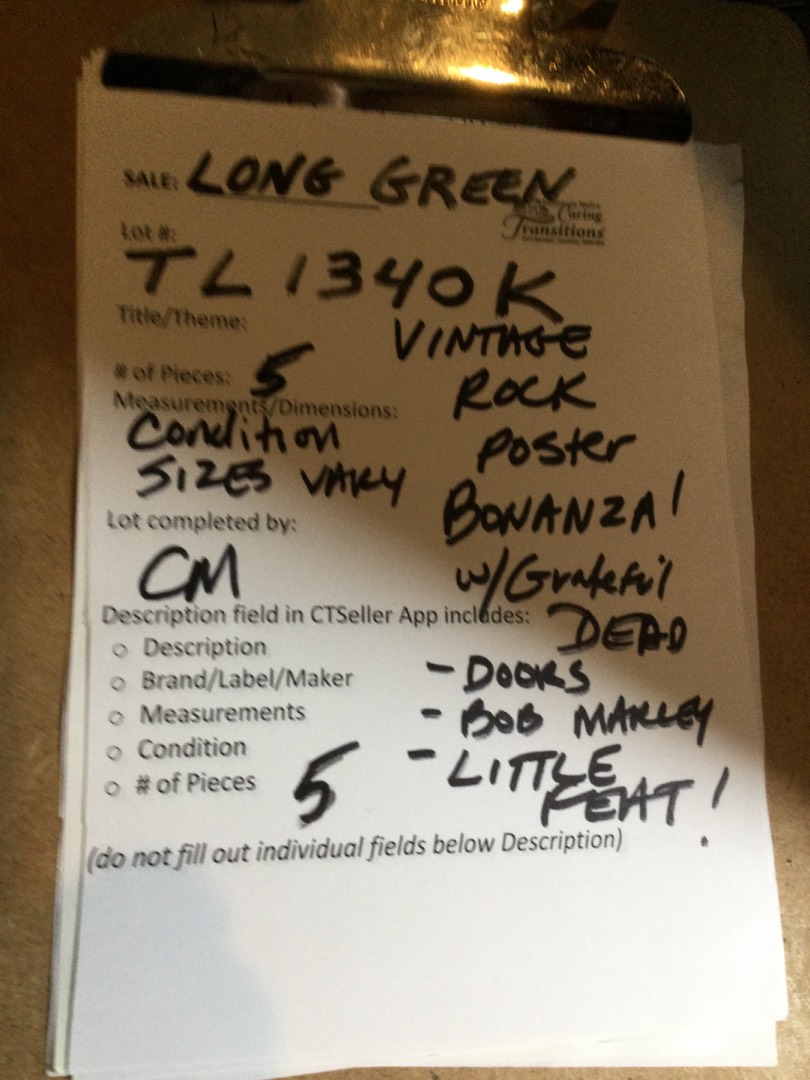 SALE: LONG GREEN
Caring
Transitions
Lot #:
TL1340K
Title/Theme:
VINTAGE
# of Pieces: 5
ROCK
Measurements/Dimensions:
Condition
POSTER
SIZES VARY
BONANZA!
Lot completed by:
CM
w/Grateful
Description field in CTSeller App includes:
DEAD
○ Description
- DOORS
○ Brand/Label/Maker
- BOB MARLEY
○ Measurements
- LITTLE
○ Condition
FEAT!
○ # of Pieces 5
(do not fill out individual fields below Description)